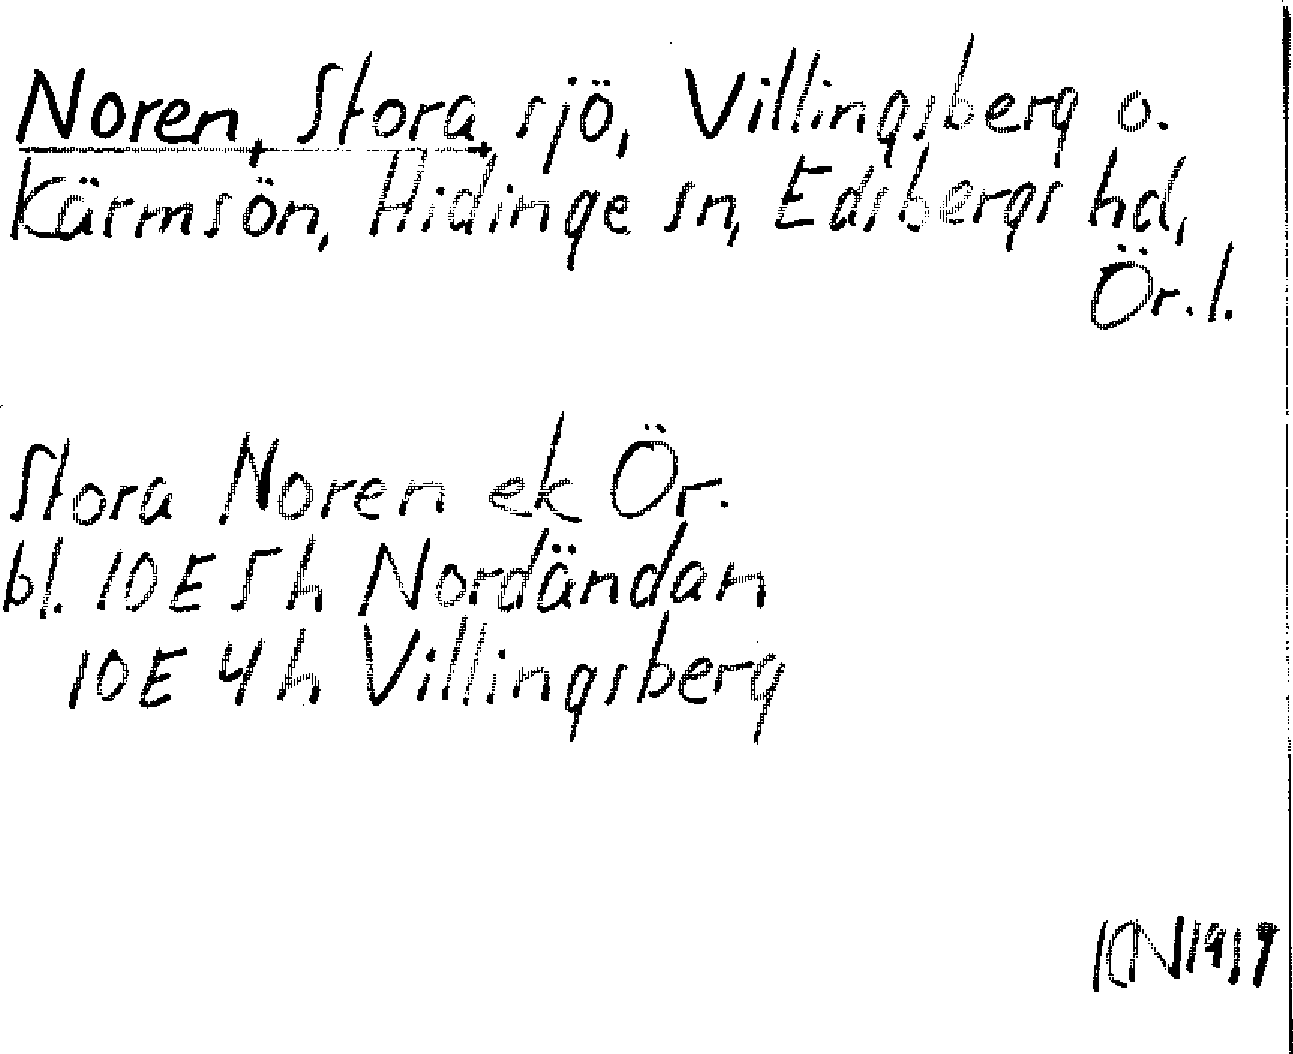 Noren, Stora sjö, Villingsberg o.
Kärmsön, Hidinge sn, Edsbergs hd,
Ör. l.
Stora Noren ek Ör.
bl. 10E 5h Nordändan
10E 4h Villingsberg